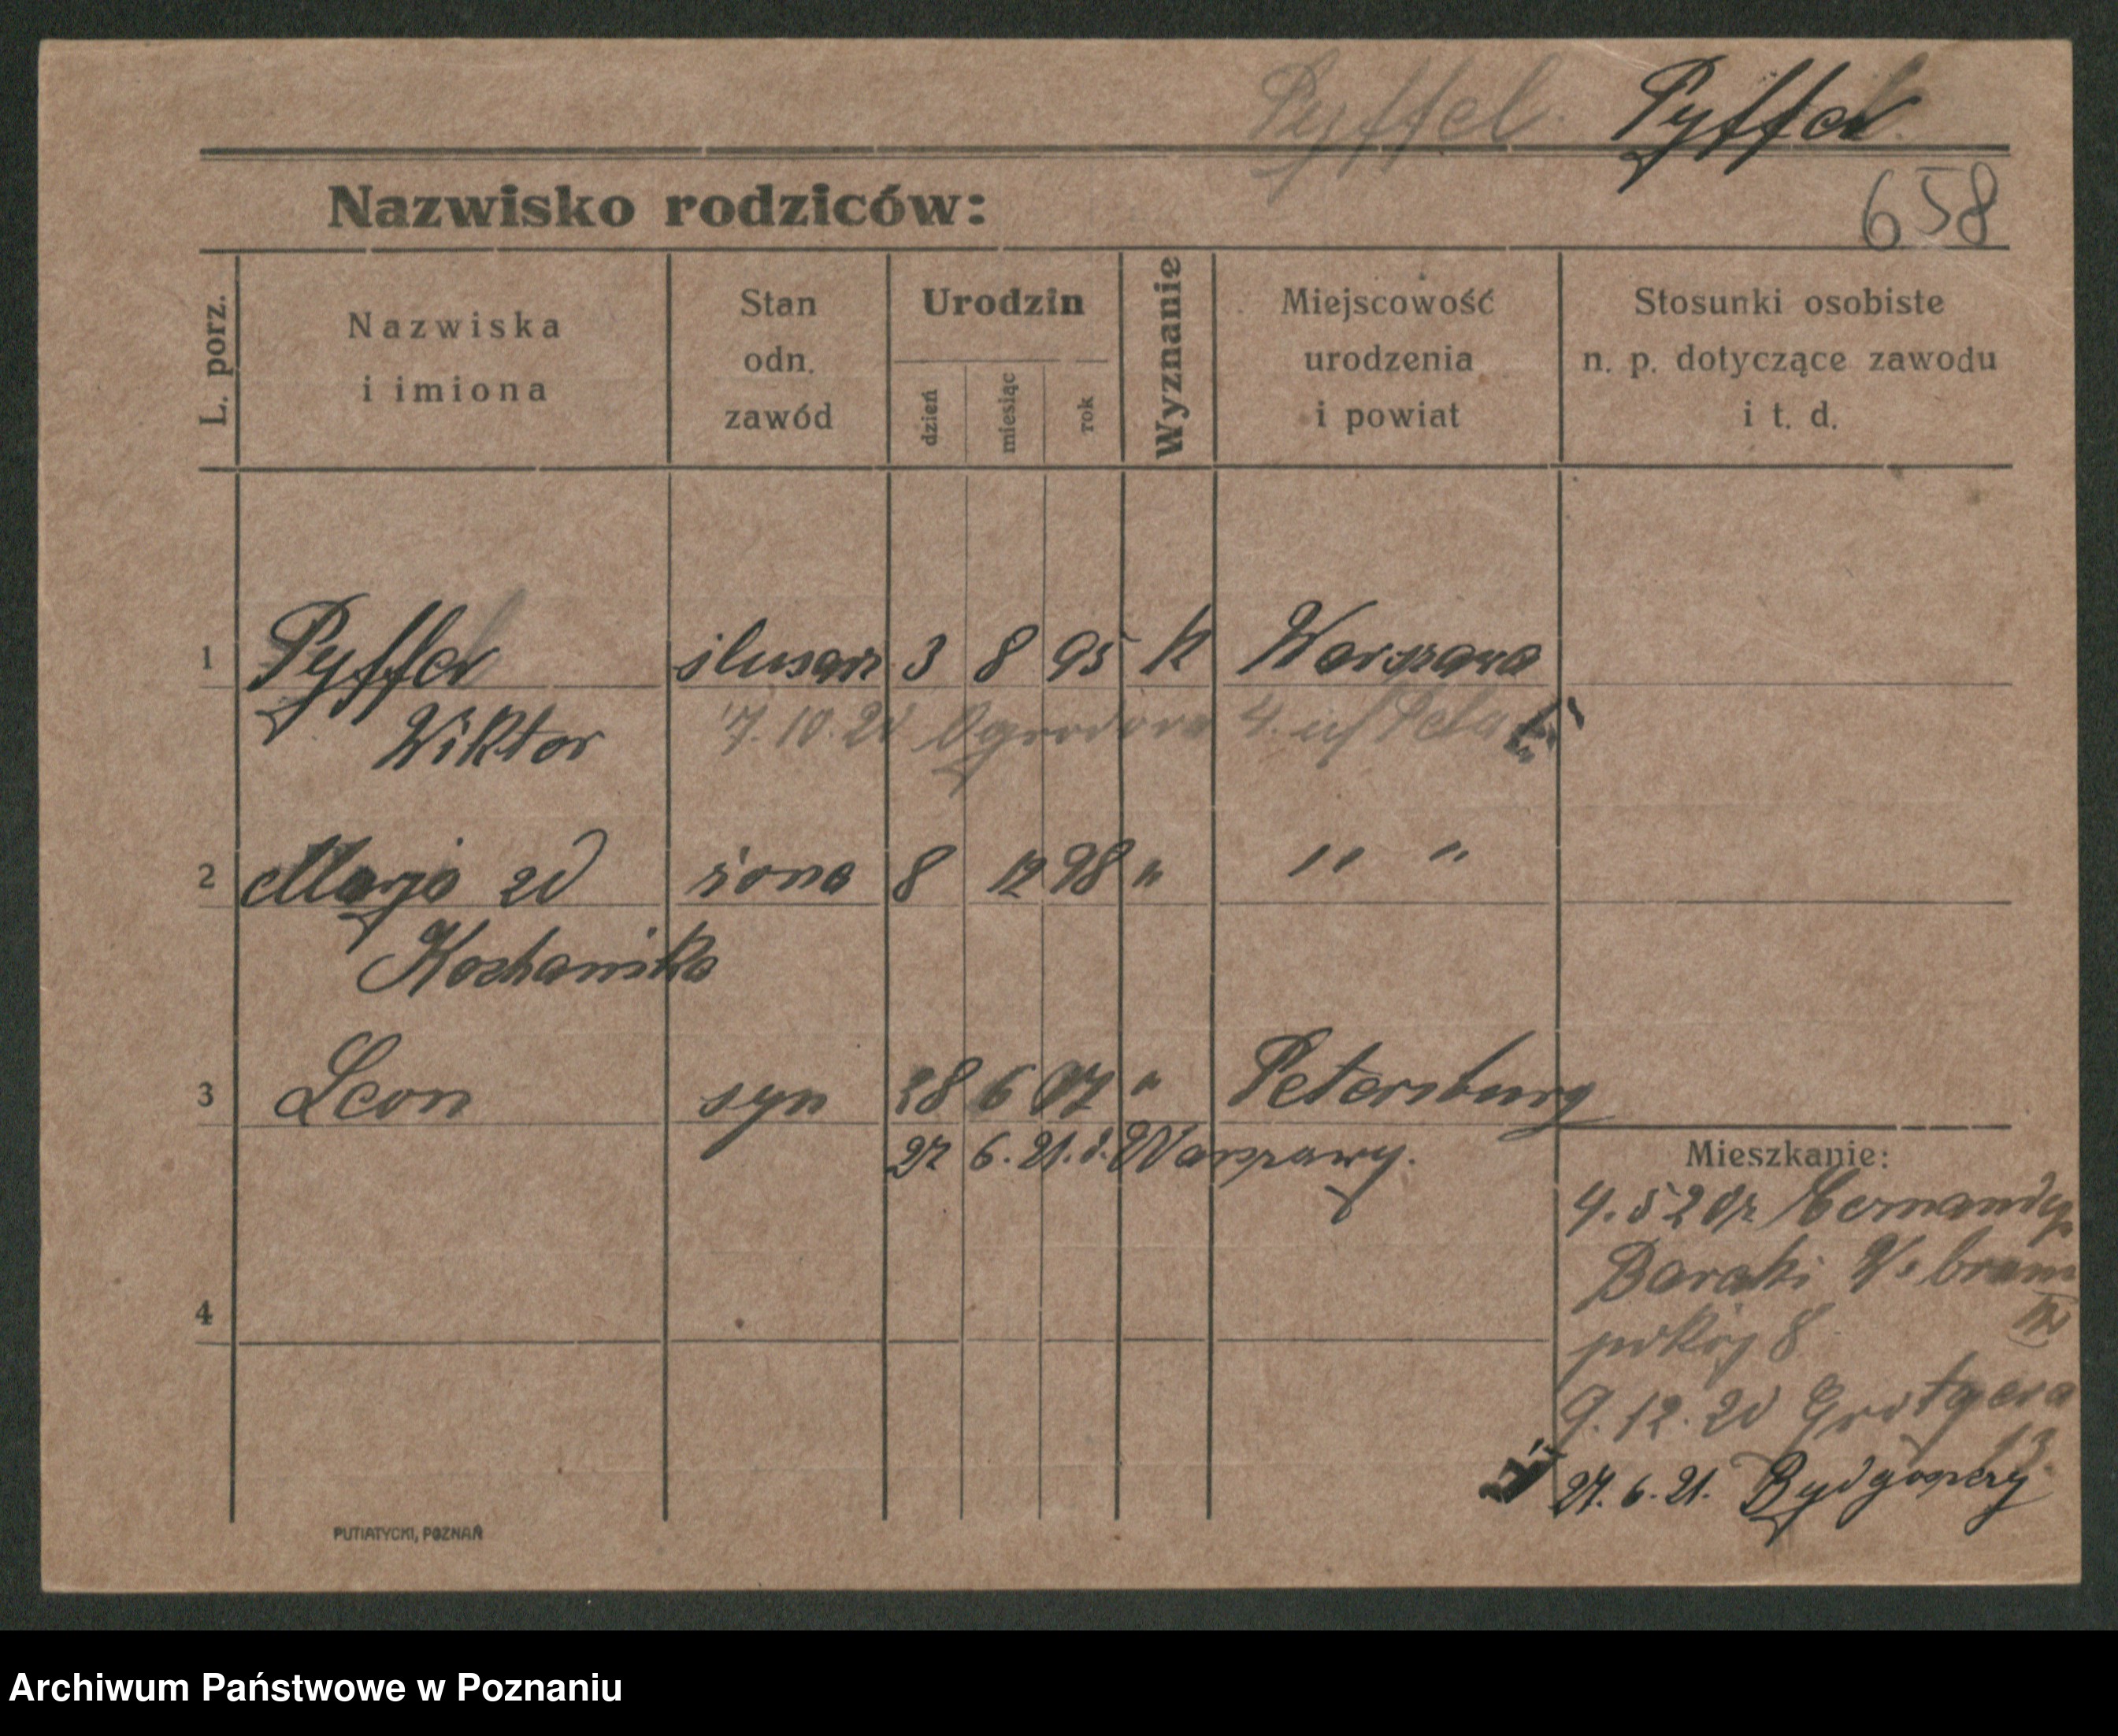 Pyffel Pyffel
658
Nazwisko rodziców:
L. porz.
Nazwiska i imiona
Stan odn. zawód
Urodzin
dzień miesiąc rok
Wyznanie
Miejscowość urodzenia i powiat
Stosunki osobiste n. p. dotyczące zawodu i t. d.
1 Pyffel ślusarz 3 8 95 k Warszawa
Wiktor 7.10.20 Ogrodowa 4.
2 Marja zd żona 8 12 98 " " "
3 Leon syn 28 6 07 " Petersburg
27 6. 21. d. Warszawy.
Mieszkanie:
4.5 20
Baraki
pokój 8
9.12.20 Grotgera
13.
27.6.21. Bydgoszczy
4
PUTIATYCKI, POZNAŃ
Archiwum Państwowe w Poznaniu